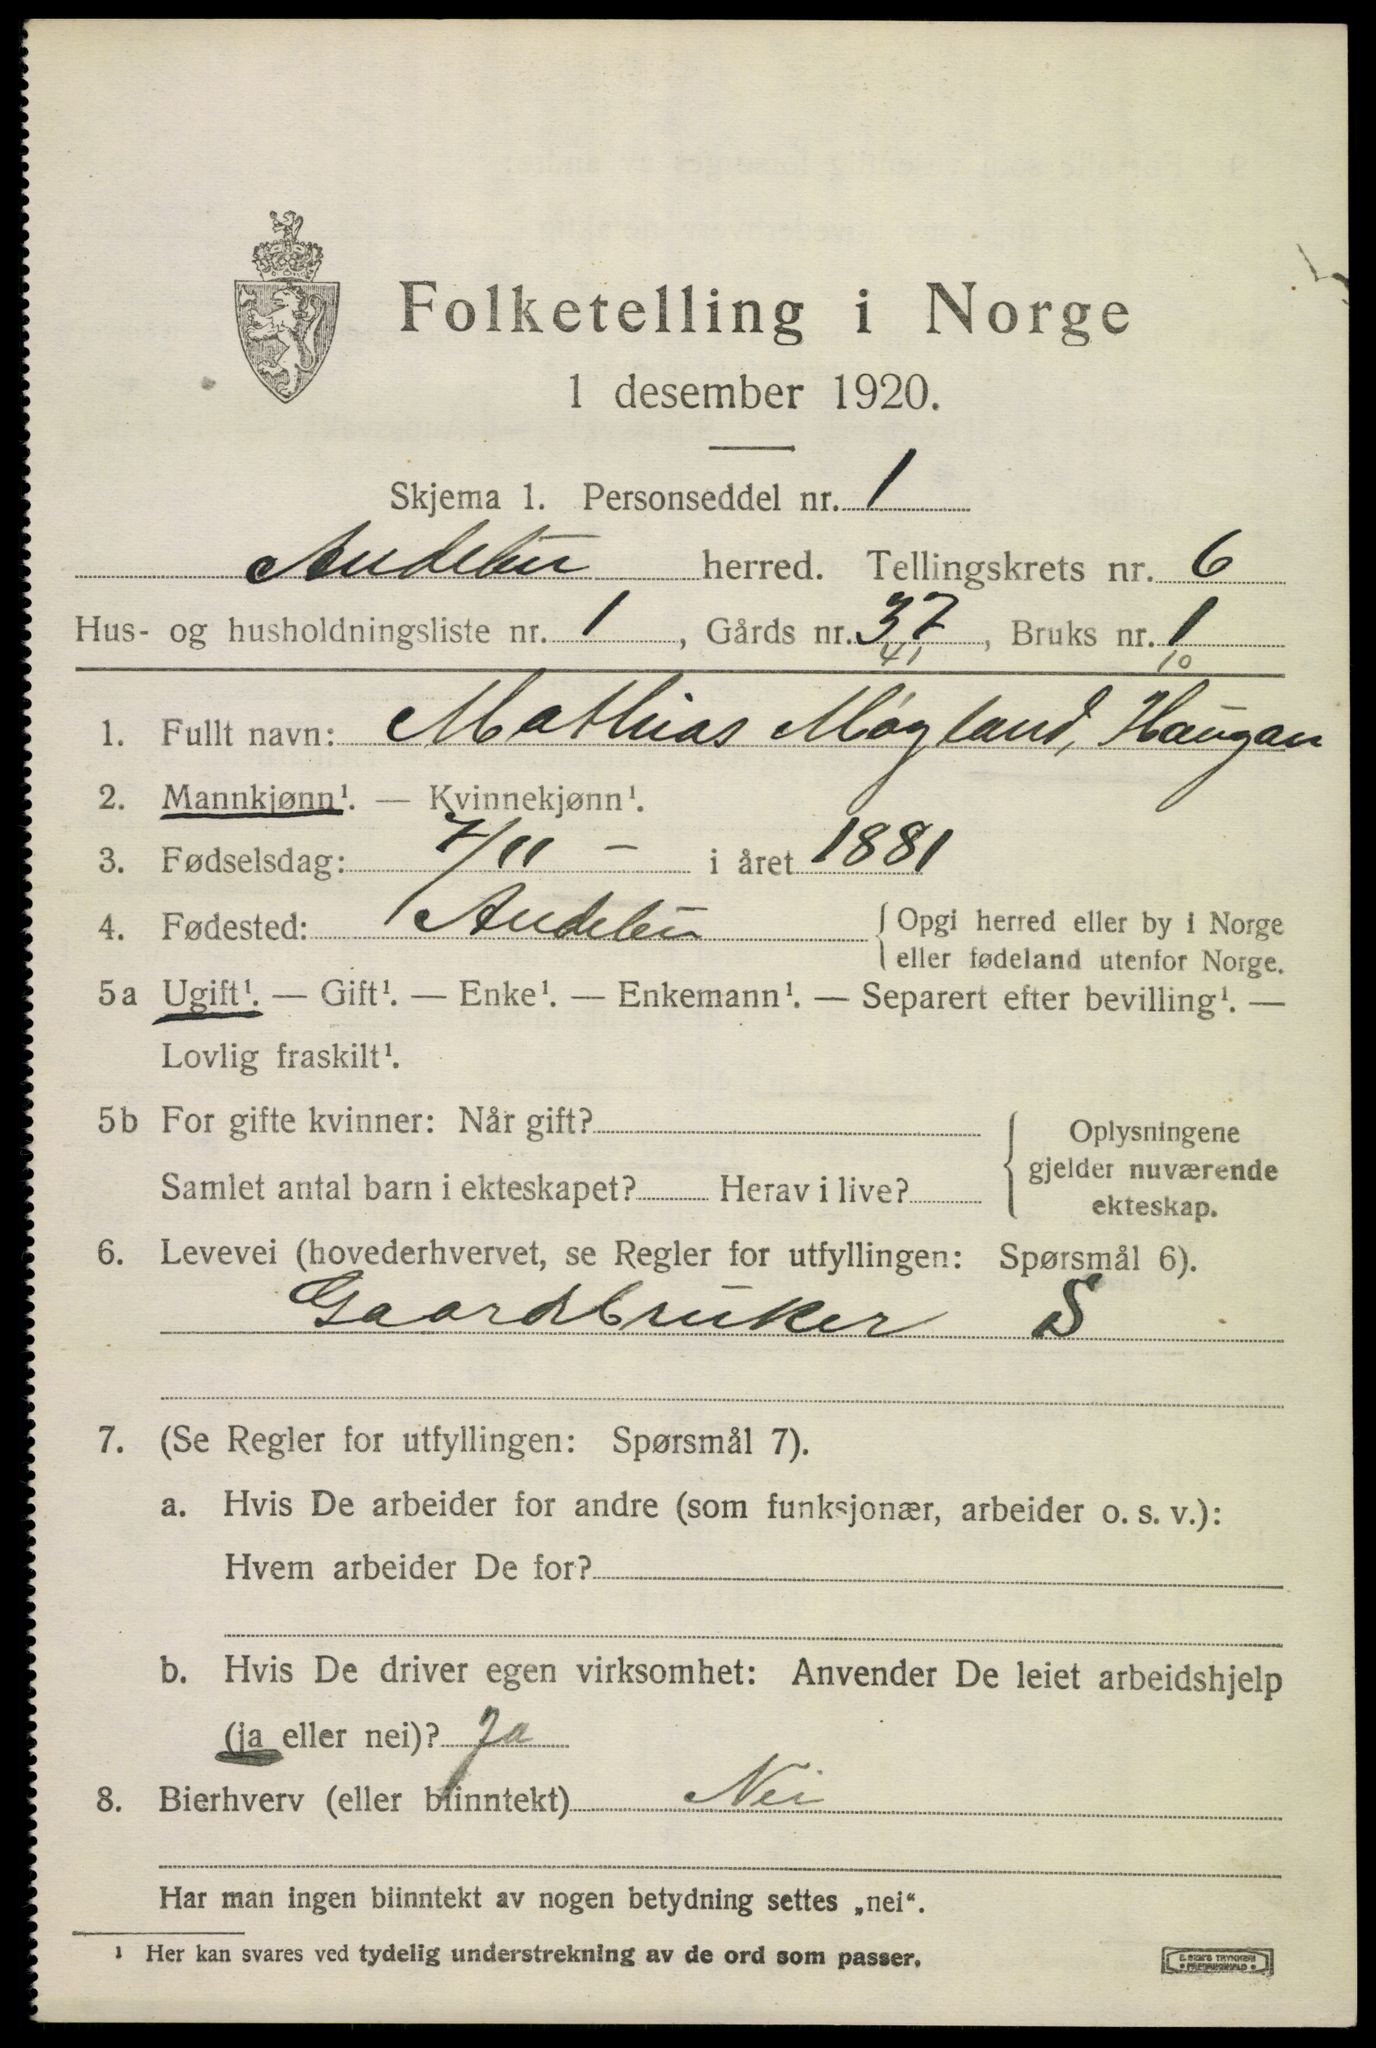 Folketelling i Norge
1 desember 1920.
Skjema 1. Personseddel nr. 1
Andebu herred. Tellingskrets nr. 6
Hus- og husholdningsliste nr. 1, Gårds nr. 37, Bruks nr. 1
41 10
1. Fullt navn: Mathias Møyland, Haugan
2. Mannkjønn¹. — Kvinnekjønn¹.
3. Fødselsdag: 7/11 – i året 1881
4. Fødested: Andebu { Opgi herred eller by i Norge
eller fødeland utenfor Norge.
5a Ugift¹. — Gift¹. — Enke¹. — Enkemann¹. — Separert efter bevilling¹. —
Lovlig fraskilt¹.
5b For gifte kvinner: Når gift? { Oplysningene
gjelder nuværende
Samlet antal barn i ekteskapet? Herav i live?
ekteskap.
6. Levevei (hovederhvervet, se Regler for utfyllingen: Spørsmål 6).
Gaardbruker S
7. (Se Regler for utfyllingen: Spørsmål 7).
a. Hvis De arbeider for andre (som funksjonær, arbeider o. s. v.):
Hvem arbeider De for?
b. Hvis De driver egen virksomhet: Anvender De leiet arbeidshjelp
(ja eller nei)? Ja
8. Bierhverv (eller biinntekt) Nei
Har man ingen biinntekt av nogen betydning settes „nei“.
¹ Her kan svares ved tydelig understrekning av de ord som passer.